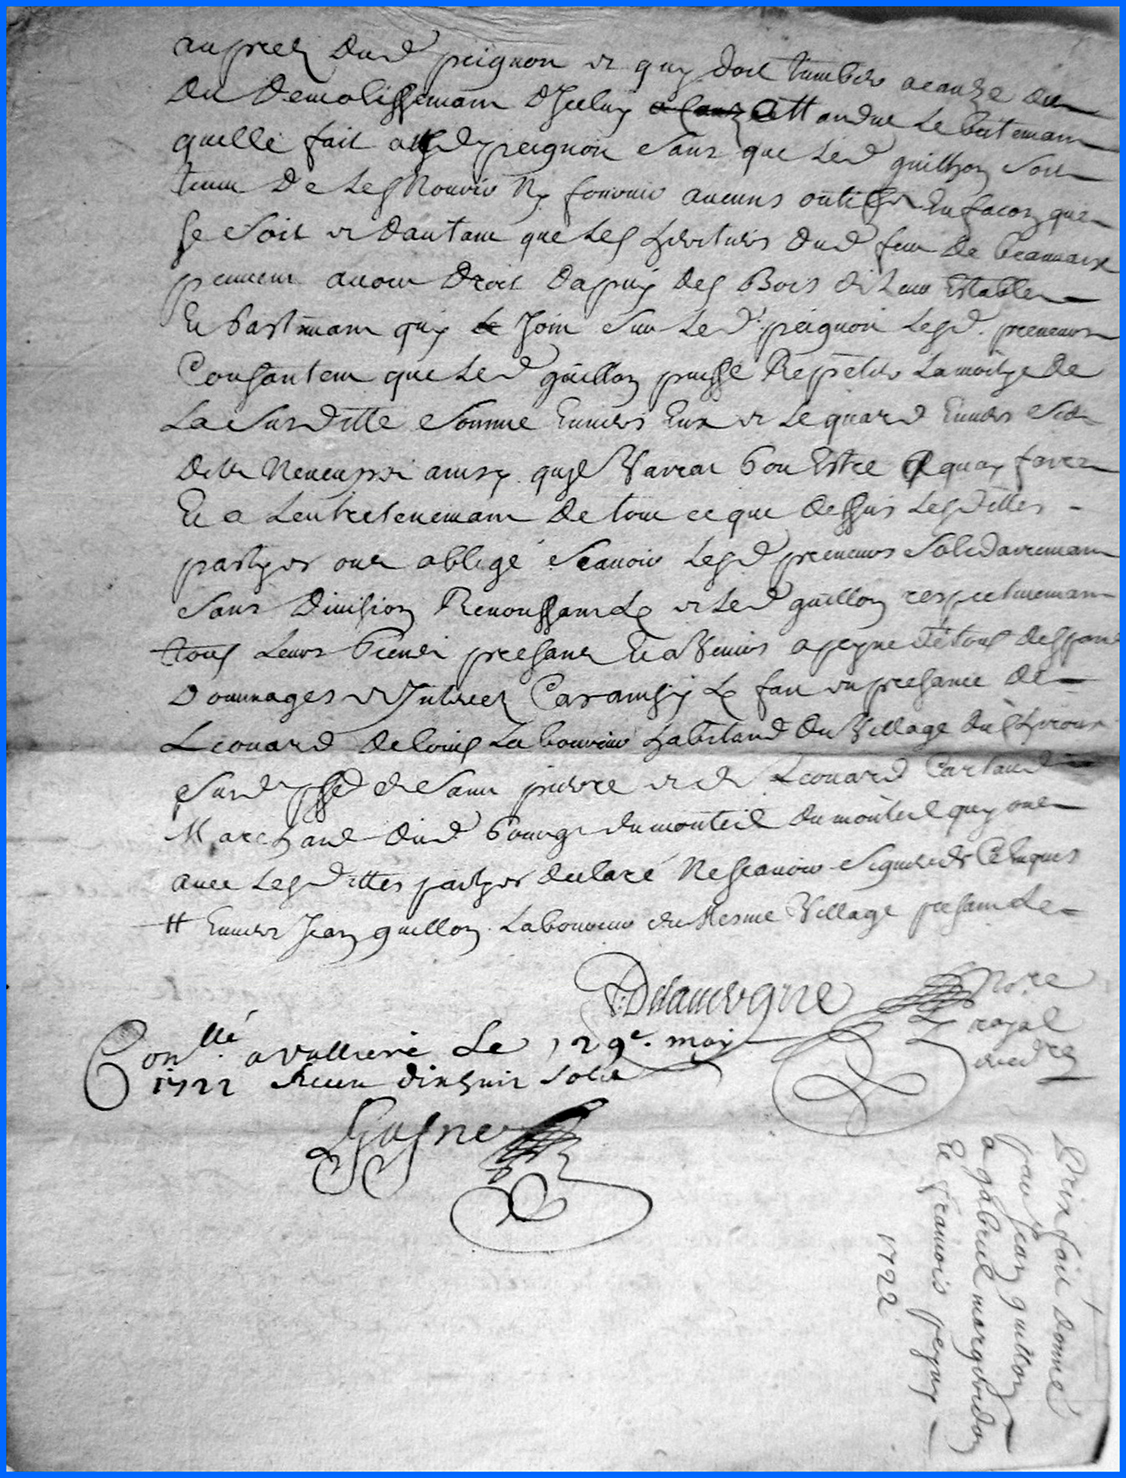 aupres dud peignon et quy doit tumber a cauze du
du demolissemant d'Jceluy attandue le batimant
quelle fait aud peignon sans que led guillon soit
tenu de les Nourir Ny fournir aucuns outilser En facon que
se soit et dautant que les heritiers dud feu de
peuvent avoir droit dapuy des Bois de leur Estable
Et bastimant quy Join sur led peignon lesd. preneurs
Consantent que led guillon puisse Repetter la moitye de
la surditte somme Envers Eux et le quard Envers
ainsy quil Verrat bon Estre a quoy faire
Et a Lentretenemant de tout ce que dessus lesdittes
partyes ont obligé scavoir lesd preneurs solidairemant
sans division Renoussant et led guillon respectivemant
tous leurs biens presans Et a Venir a peyne de tous despans
dommages et Jnterez Car ainsy fait en presance de
Léonard deloius Laboureur habitand du Village du
sur de sainct pierre et de Léonard Cartaud
Marchand dud bourg du monteil du monteil quy ont
avec lesdittes partyes declaré Ne scavoir signer de ce Enquis
# Envers Jean guillon Laboureur du Mesme Village presant
Delauvergne Nore
royal
Conllé a Vallieré Le 29e. may
1722 Receu dix huit sols
Gasne
Prix fait donné
par Jean guillon
a gabriel margeridon
Et francois peyny
1722